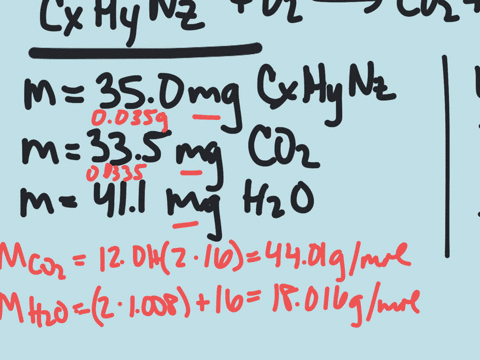 CxHyNz + O2 → CO2 +
m = 35.0mg CxHyNz
0.035g
m = 33.5 mg CO2
0.0335
m = 41.1 mg H2O
MCO2 = 12.01+(2·16)=44.01g/mole
MH2O=(2·1.008)+16= 18.016g/mole